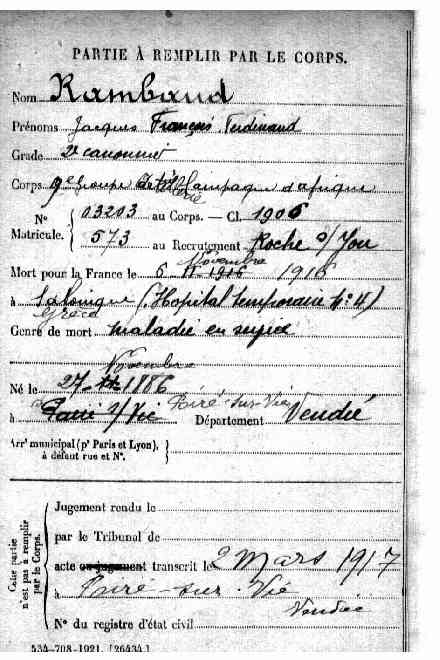 PARTIE À REMPLIR PAR LE CORPS.
Nom Rambaud
Prénoms Jacques François Ferdinand
Grade 2e canonnier
Corps 9e Groupe d'afrique
N° Matricule. 03203 au Corps. — Cl. 1906
573 au Recrutement Roche s/Yon
Novembre
Mort pour la France le 6 11-1916 1916
à Salonique (Hopital temporaire N° 4)
Grèce
Genre de mort maladie en service
Novembre
Né le 27-11-1886
à s/Vie Piré-sur-Vie Département Vendée
Arrt municipal (pr Paris et Lyon), à défaut rue et N°.
Cette partie n'est pas à remplir par le Corps.
Jugement rendu le
par le Tribunal de
acte ou jugement transcrit le 2 Mars 1917
à Piré-sur-Vie
Vendée
N° du registre d'état civil
534-708-1921. [26434.]